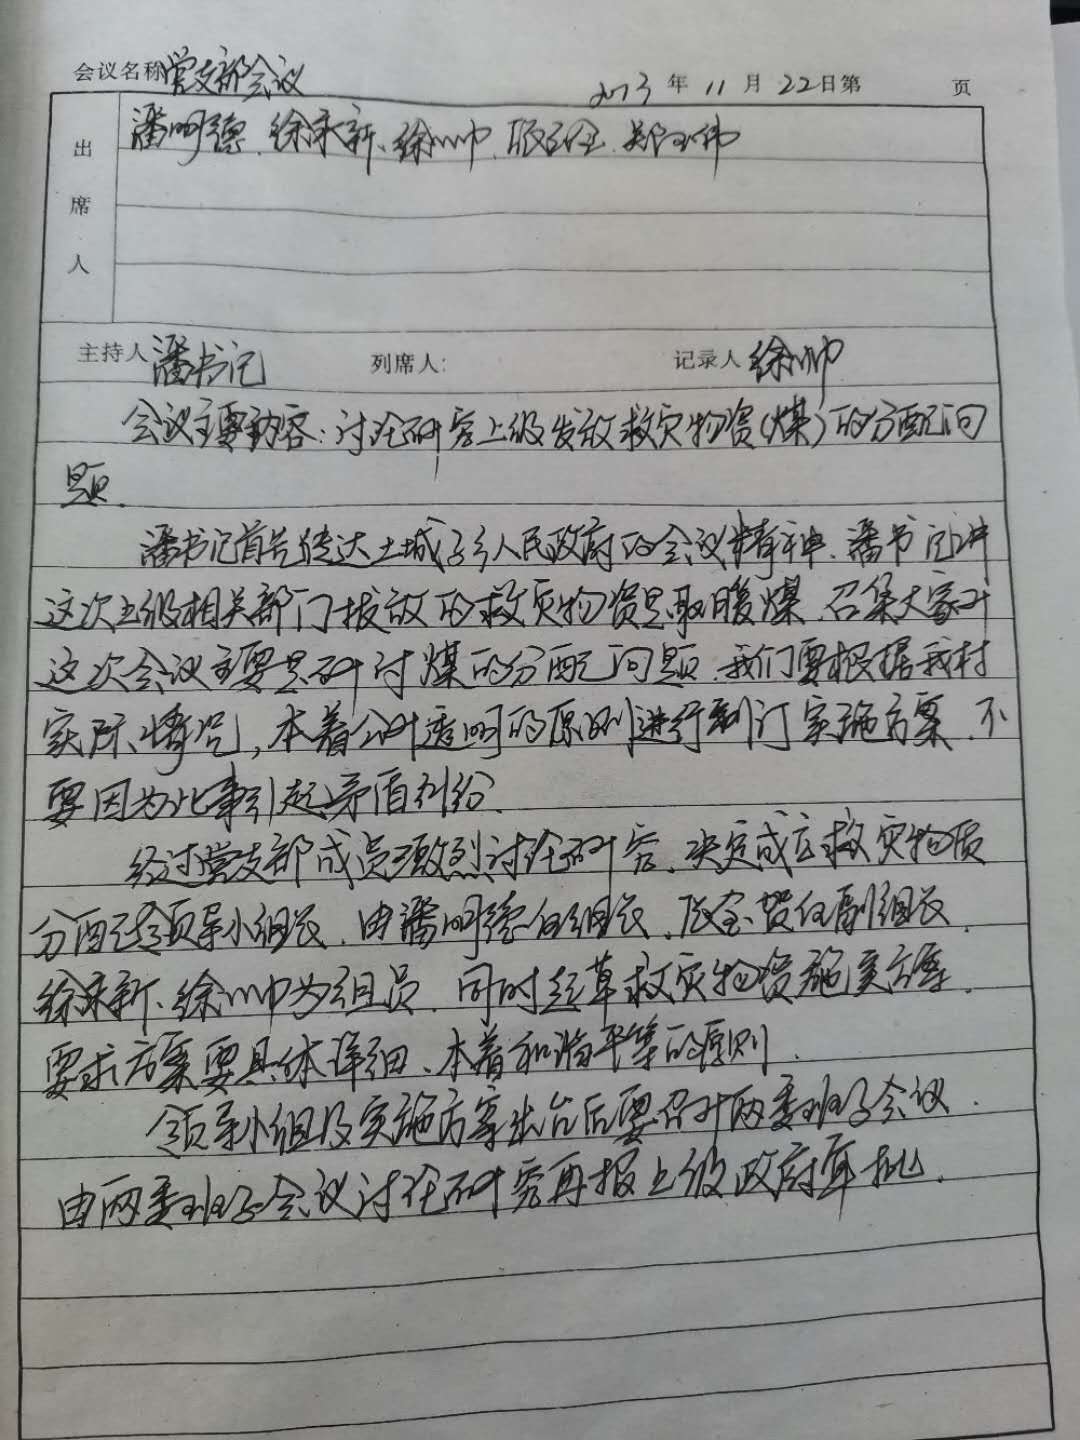 会议名称 党支部会议 2013年11月22日第 页
出席人 潘明德、徐永新、徐帅、 郑玉伟
主持人 潘书记 列席人: 记录人 徐帅
会议主要内容:讨论研究上级发放救灾物资(煤)的分配问
题.
潘书记首先传达土城子乡人民政府的会议精神.潘书记讲
这次上级相关部门拨放的救灾物资是取暖煤.召集大家开
这次会议主要是研讨煤的分配问题.我们要根据我村
实际情况,本着公开透明的原则进行制订实施方案.不
要因为此事引起矛盾纠纷.
经过党支部成员激烈讨论研究.决定成立救灾物质
分配领导小组.由潘明德任组长.任副组长.
徐永新、徐帅为组员.同时起草救灾物资施实方案.
要求方案要具体详细、本着和谐平等的原则.
领导小组及实施方案出台后要召开两委班子会议.
由两委班子会议讨论研究再报上级政府审批.